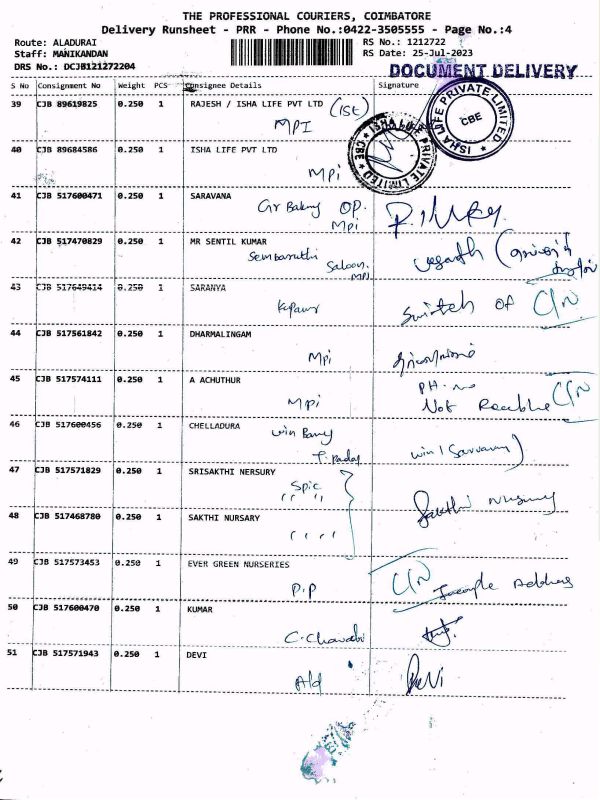 THE PROFESSIONAL COURIERS, COIMBATORE
Delivery Runsheet - PRR - Phone No.:0422-3505555 - Page No.:4
Route: ALADURAI RS No.: 1212722
Staff: MANIKANDAN RS Date: 25-Jul-2023
DRS No.: DCJB121272204 DOCUMENT DELIVERY
S No Consignment No Weight PCS Consignee Details Signature
39 CJB 89619825 0.250 1 RAJESH / ISHA LIFE PVT LTD (ISt)
MPI
ISHA LIFE PRIVATE LIMITED CBE
40 CJB 89684586 0.250 1 ISHA LIFE PVT LTD
MPi
ISHA LIFE PRIVATE LIMITED CBE
41 CJB 517600471 0.250 1 SARAVANA
OP.
MPi
42 CJB 517470829 0.250 1 MR SENTIL KUMAR
Saloon.
MPi
43 CJB 517649414 0.250 1 SARANYA
Switch of C/N
44 CJB 517561842 0.250 1 DHARMALINGAM
MPi
45 CJB 517574111 0.250 1 A ACHUTHUR
PH. no C/N
MPi Not
46 CJB 517600456 0.250 1 CHELLADURA
win
win
47 CJB 517571829 0.250 1 SRISAKTHI NERSURY
Spic
" "
Sakthi
48 CJB 517468780 0.250 1 SAKTHI NURSARY
" "
49 CJB 517573453 0.250 1 EVER GREEN NURSERIES
P.P C/N Address
50 CJB 517600470 0.250 1 KUMAR
51 CJB 517571943 0.250 1 DEVI
Ald DeVi